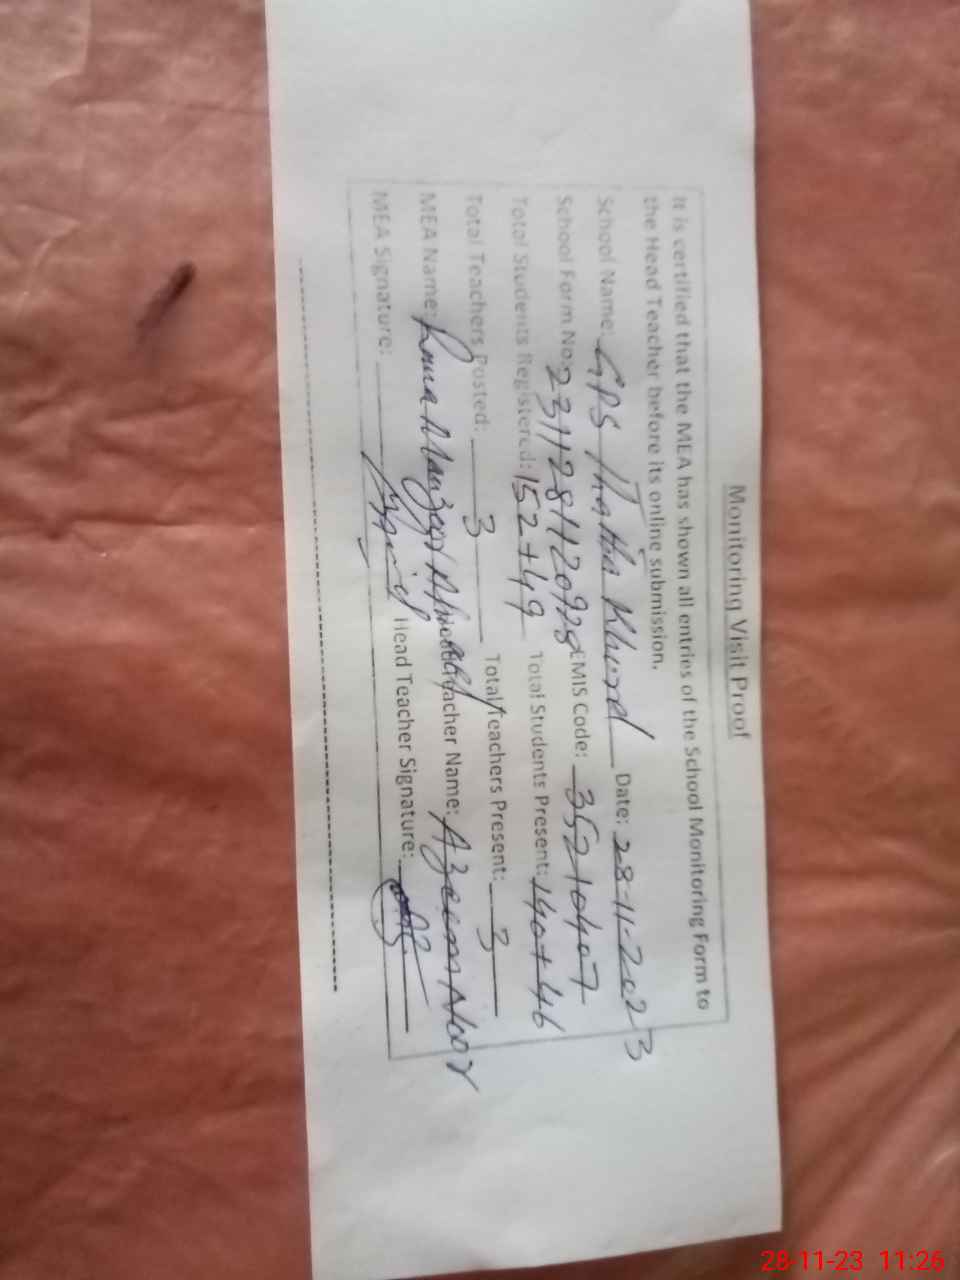 Monitoring Visit Proof
It is certified that the MEA has shown all entries of the School Monitoring Form to
the Head Teacher before its online submission.
School Name: GPS Thatha Khurd Date: 28-11-2023
School Form No: 23112811120928 EMIS Code: 35210407
Total Students Registered: 152+49 Total Students Present: 140+46
Total Teachers Posted: 3 Total Teachers Present: 3
MEA Name: Rana Head Teacher Name: Azeem Noor
MEA Signature: Head Teacher Signature:
28-11-23 11:26